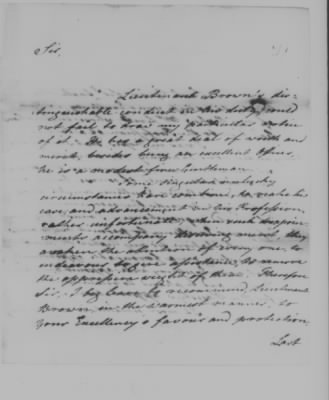 Sir,
Lieutenant Brown's dis-
tinguishable conduct in his duty, could
not fail to draw my particular notice
of it. He has a great deal of worth and
merit, besides being an excellent Officer,
he is a modest fine Gentleman.
Some singular melancholy
circumstances have combined, to make his
case, and advancement in his Profession,
rather unfortunate, when such
accompany men, they
awaken the attention of every one, to
endeavour to give assistance, to remove
the oppressive weight of them. Therefore
Sir, I beg leave to recommend, Lieutenant
Brown, in the warmest manner, to
your Excellency's favour and protection.
Last